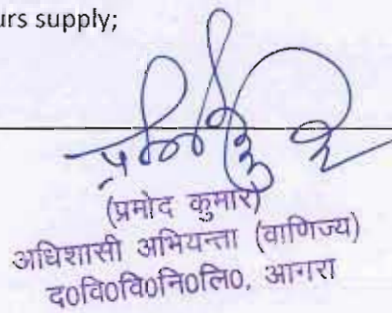 urs supply;
(प्रमोद कुमार)
अधिशासी अभियन्ता (वाणिज्य)
द०वि०वि०नि०लि०, आगरा